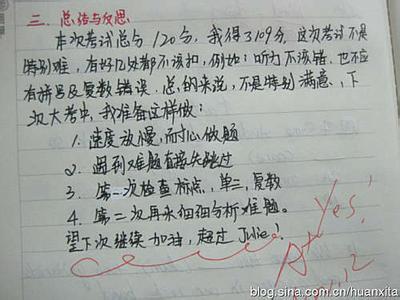 三、总结与反思
本次考试总分120分，我得了109分，这次考试不是
特别难，有好几处都不该扣，例如：听力不该错，也不应
有拼写及复数错误，总的来说，不是特别满意，下
次大考中，我准备这样做：
1. 速度放慢，耐心做题
2. 遇到难题直接先跳过
3. 第一次检查标点，单三，复数
4. 第二次再来细细分析难题。
望下次继续加油，超过 Julie！
Yes!
A+
blog.sina.com.cn/huanxita